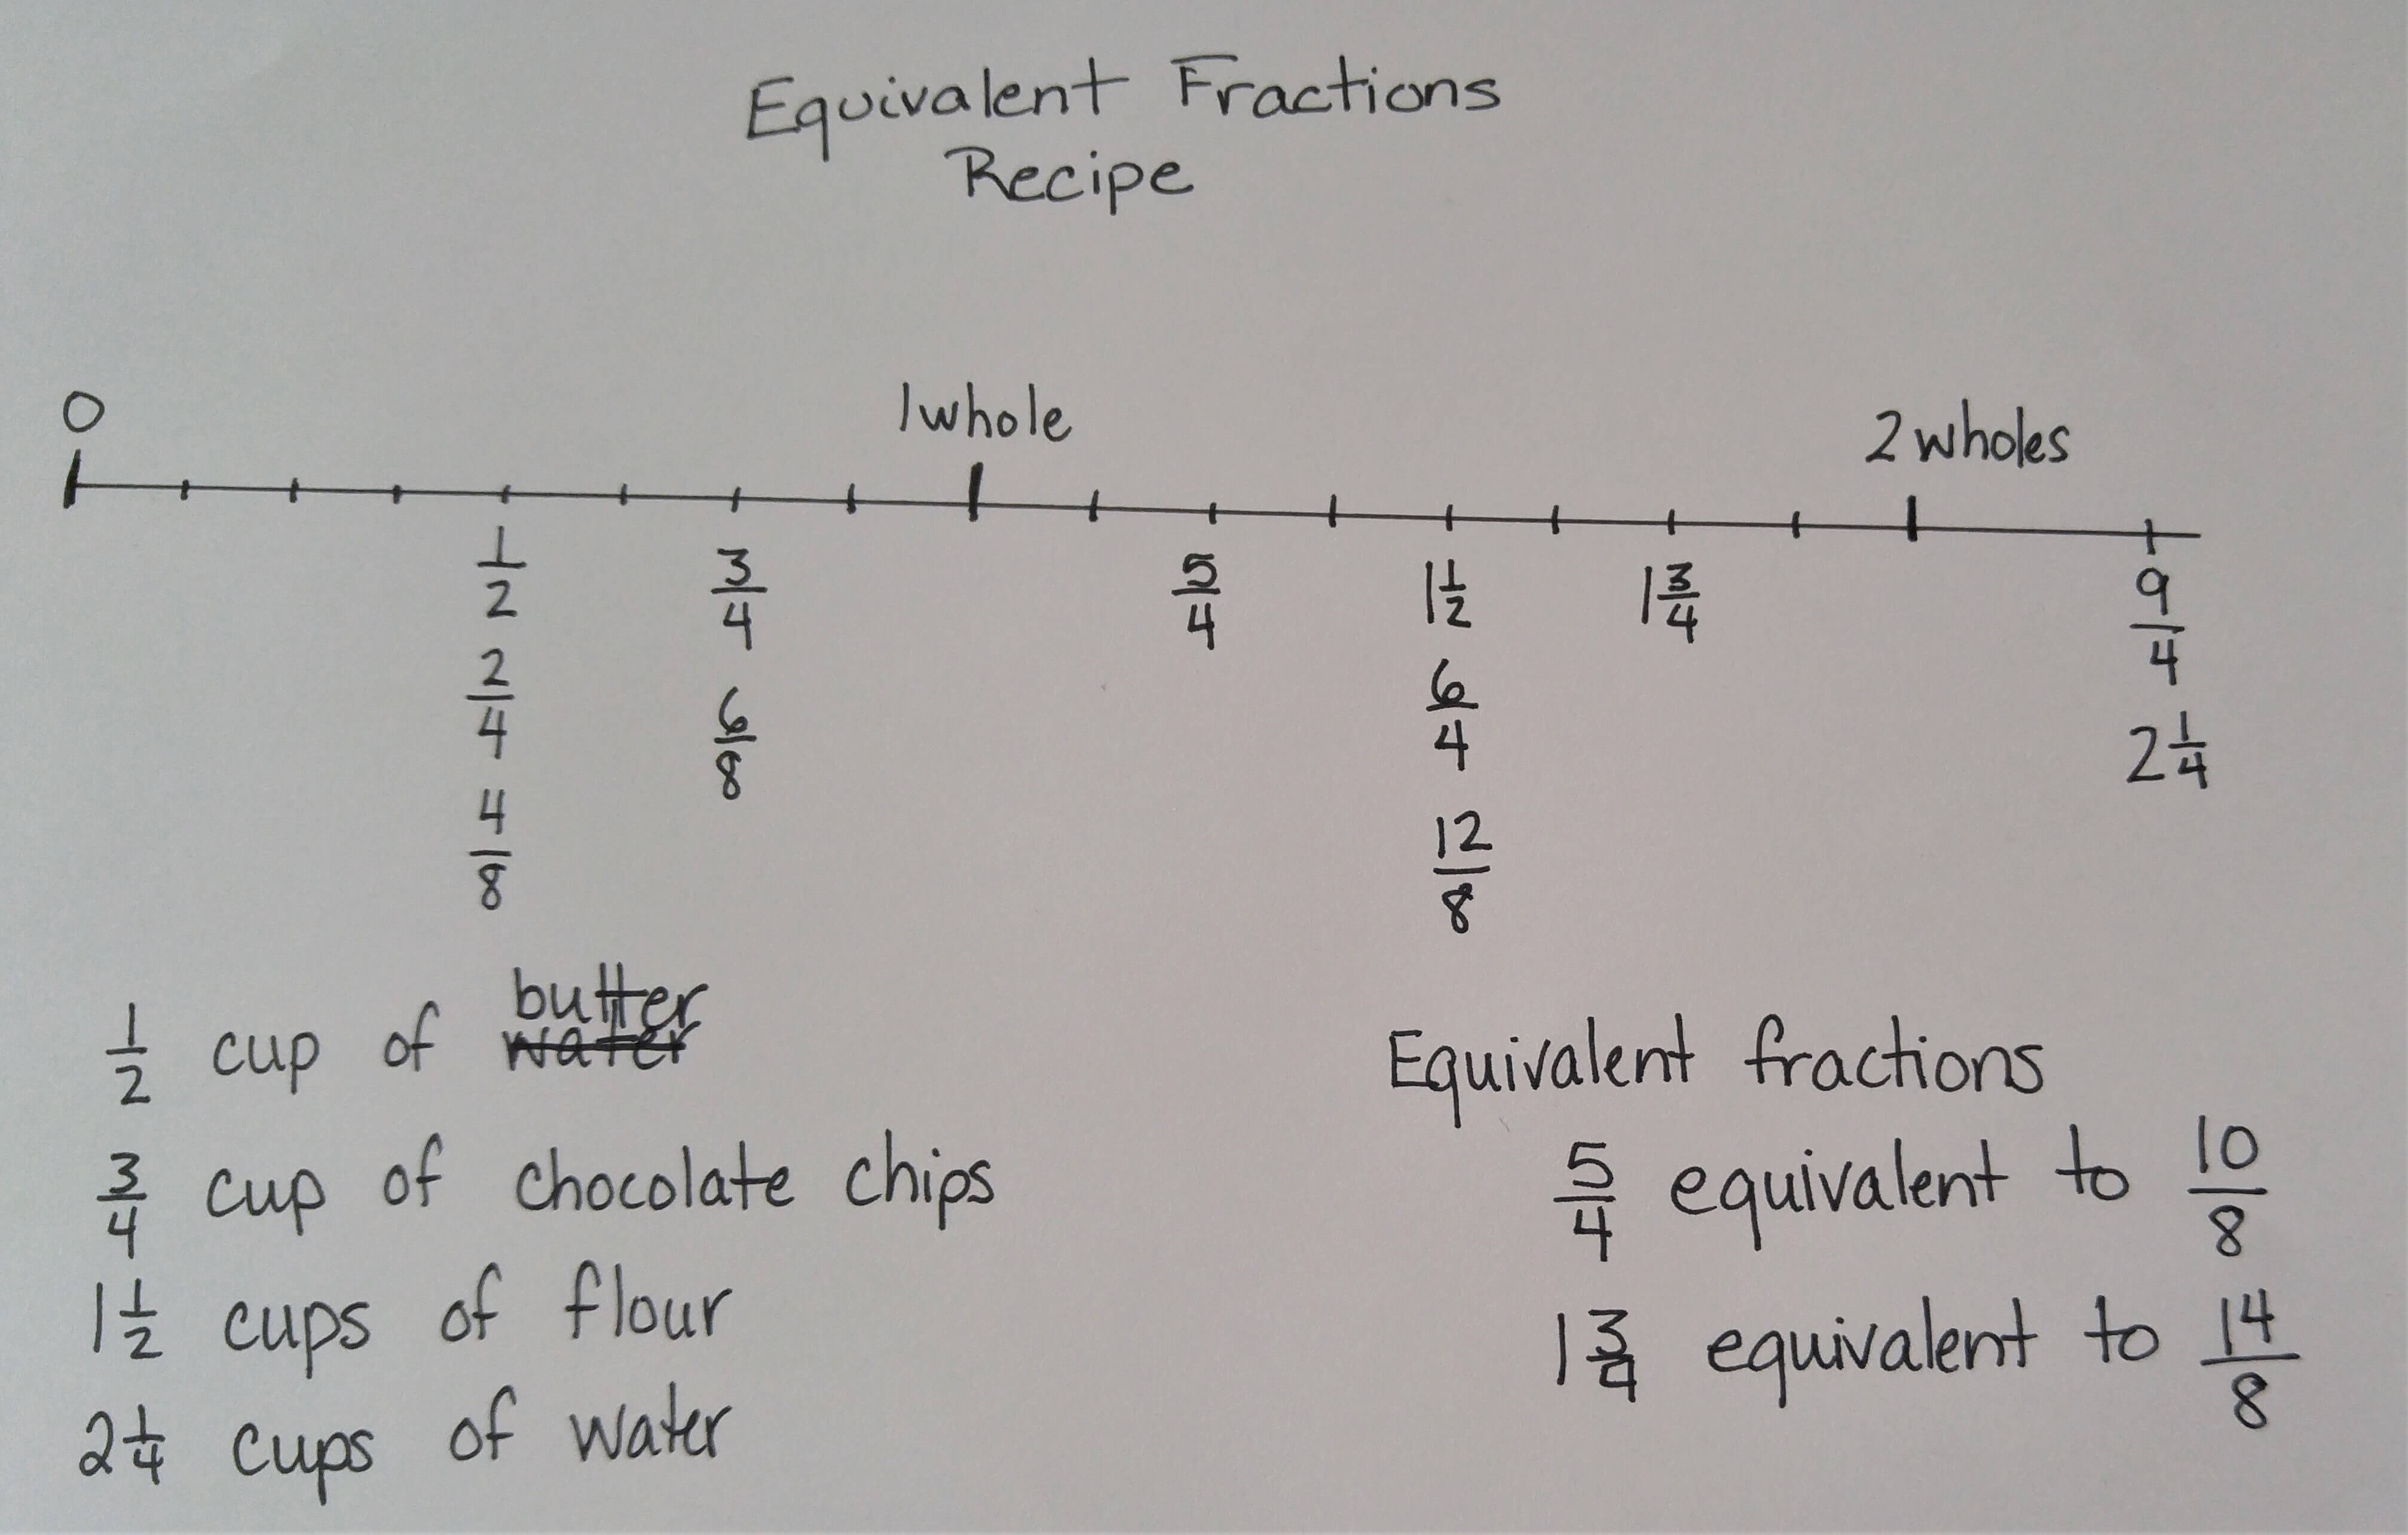 Equivalent Fractions
Recipe
0 1 whole 2 wholes
1/2 3/4 5/4 1 1/2 1 3/4 9/4
2/4 6/8 6/4 2 1/4
4/8 12/8
1/2 cup of ~~water~~ butter
3/4 cup of chocolate chips
1 1/2 cups of flour
2 1/4 cups of water
Equivalent fractions
5/4 equivalent to 10/8
1 3/4 equivalent to 14/8